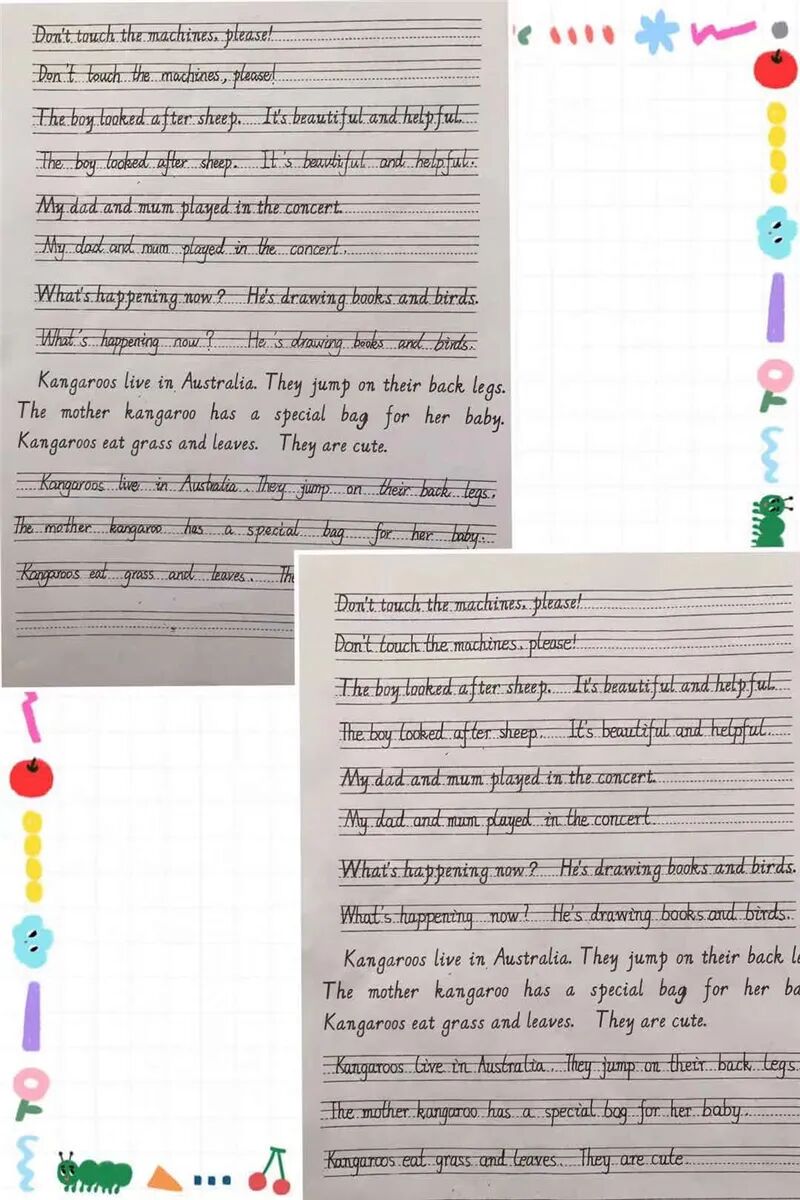 Don't touch the machines, please!
Don't touch the machines, please!
The boy looked after sheep. It's beautiful and helpful.
The boy looked after sheep. It's beautiful and helpful.
My dad and mum played in the concert.
My dad and mum played in the concert.
What's happening now? He's drawing books and birds.
What's happening now? He's drawing books and birds.
Kangaroos live in Australia. They jump on their back legs.
The mother kangaroo has a special bag for her baby.
Kangaroos eat grass and leaves. They are cute.
Kangaroos live in Australia. They jump on their back legs.
The mother kangaroo has a special bag for her baby.
Kangaroos eat grass and leaves. The
Don't touch the machines, please!
Don't touch the machines, please!
The boy looked after sheep. It's beautiful and helpful.
The boy looked after sheep. It's beautiful and helpful.
My dad and mum played in the concert.
My dad and mum played in the concert.
What's happening now? He's drawing books and birds.
What's happening now? He's drawing books and birds.
Kangaroos live in Australia. They jump on their back le
The mother kangaroo has a special bag for her ba
Kangaroos eat grass and leaves. They are cute.
Kangaroos live in Australia. They jump on their back legs
The mother kangaroo has a special bag for her baby.
Kangaroos eat grass and leaves. They are cute.